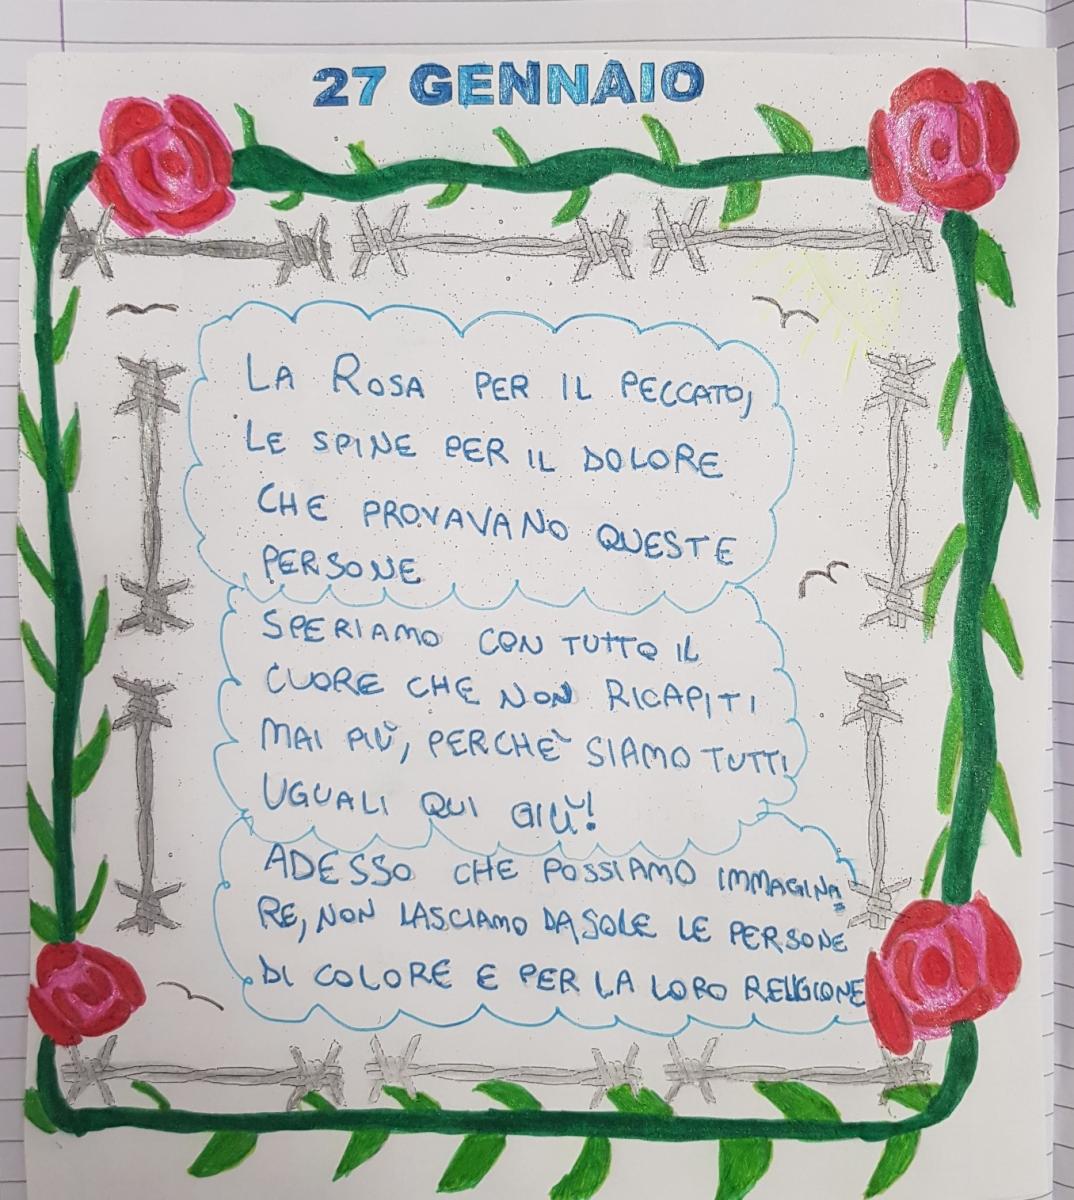 27 GENNAIO
LA ROSA PER IL PECCATO,
LE SPINE PER IL DOLORE
CHE PROVAVANO QUESTE
PERSONE
SPERIAMO CON TUTTO IL
CUORE CHE NON RICAPITI
MAI PIÙ, PERCHÈ SIAMO TUTTI
UGUALI QUI GIÙ!
ADESSO CHE POSSIAMO IMMAGINA
RE, NON LASCIAMO DA SOLE LE PERSONE
DI COLORE E PER LA LORO RELIGIONE